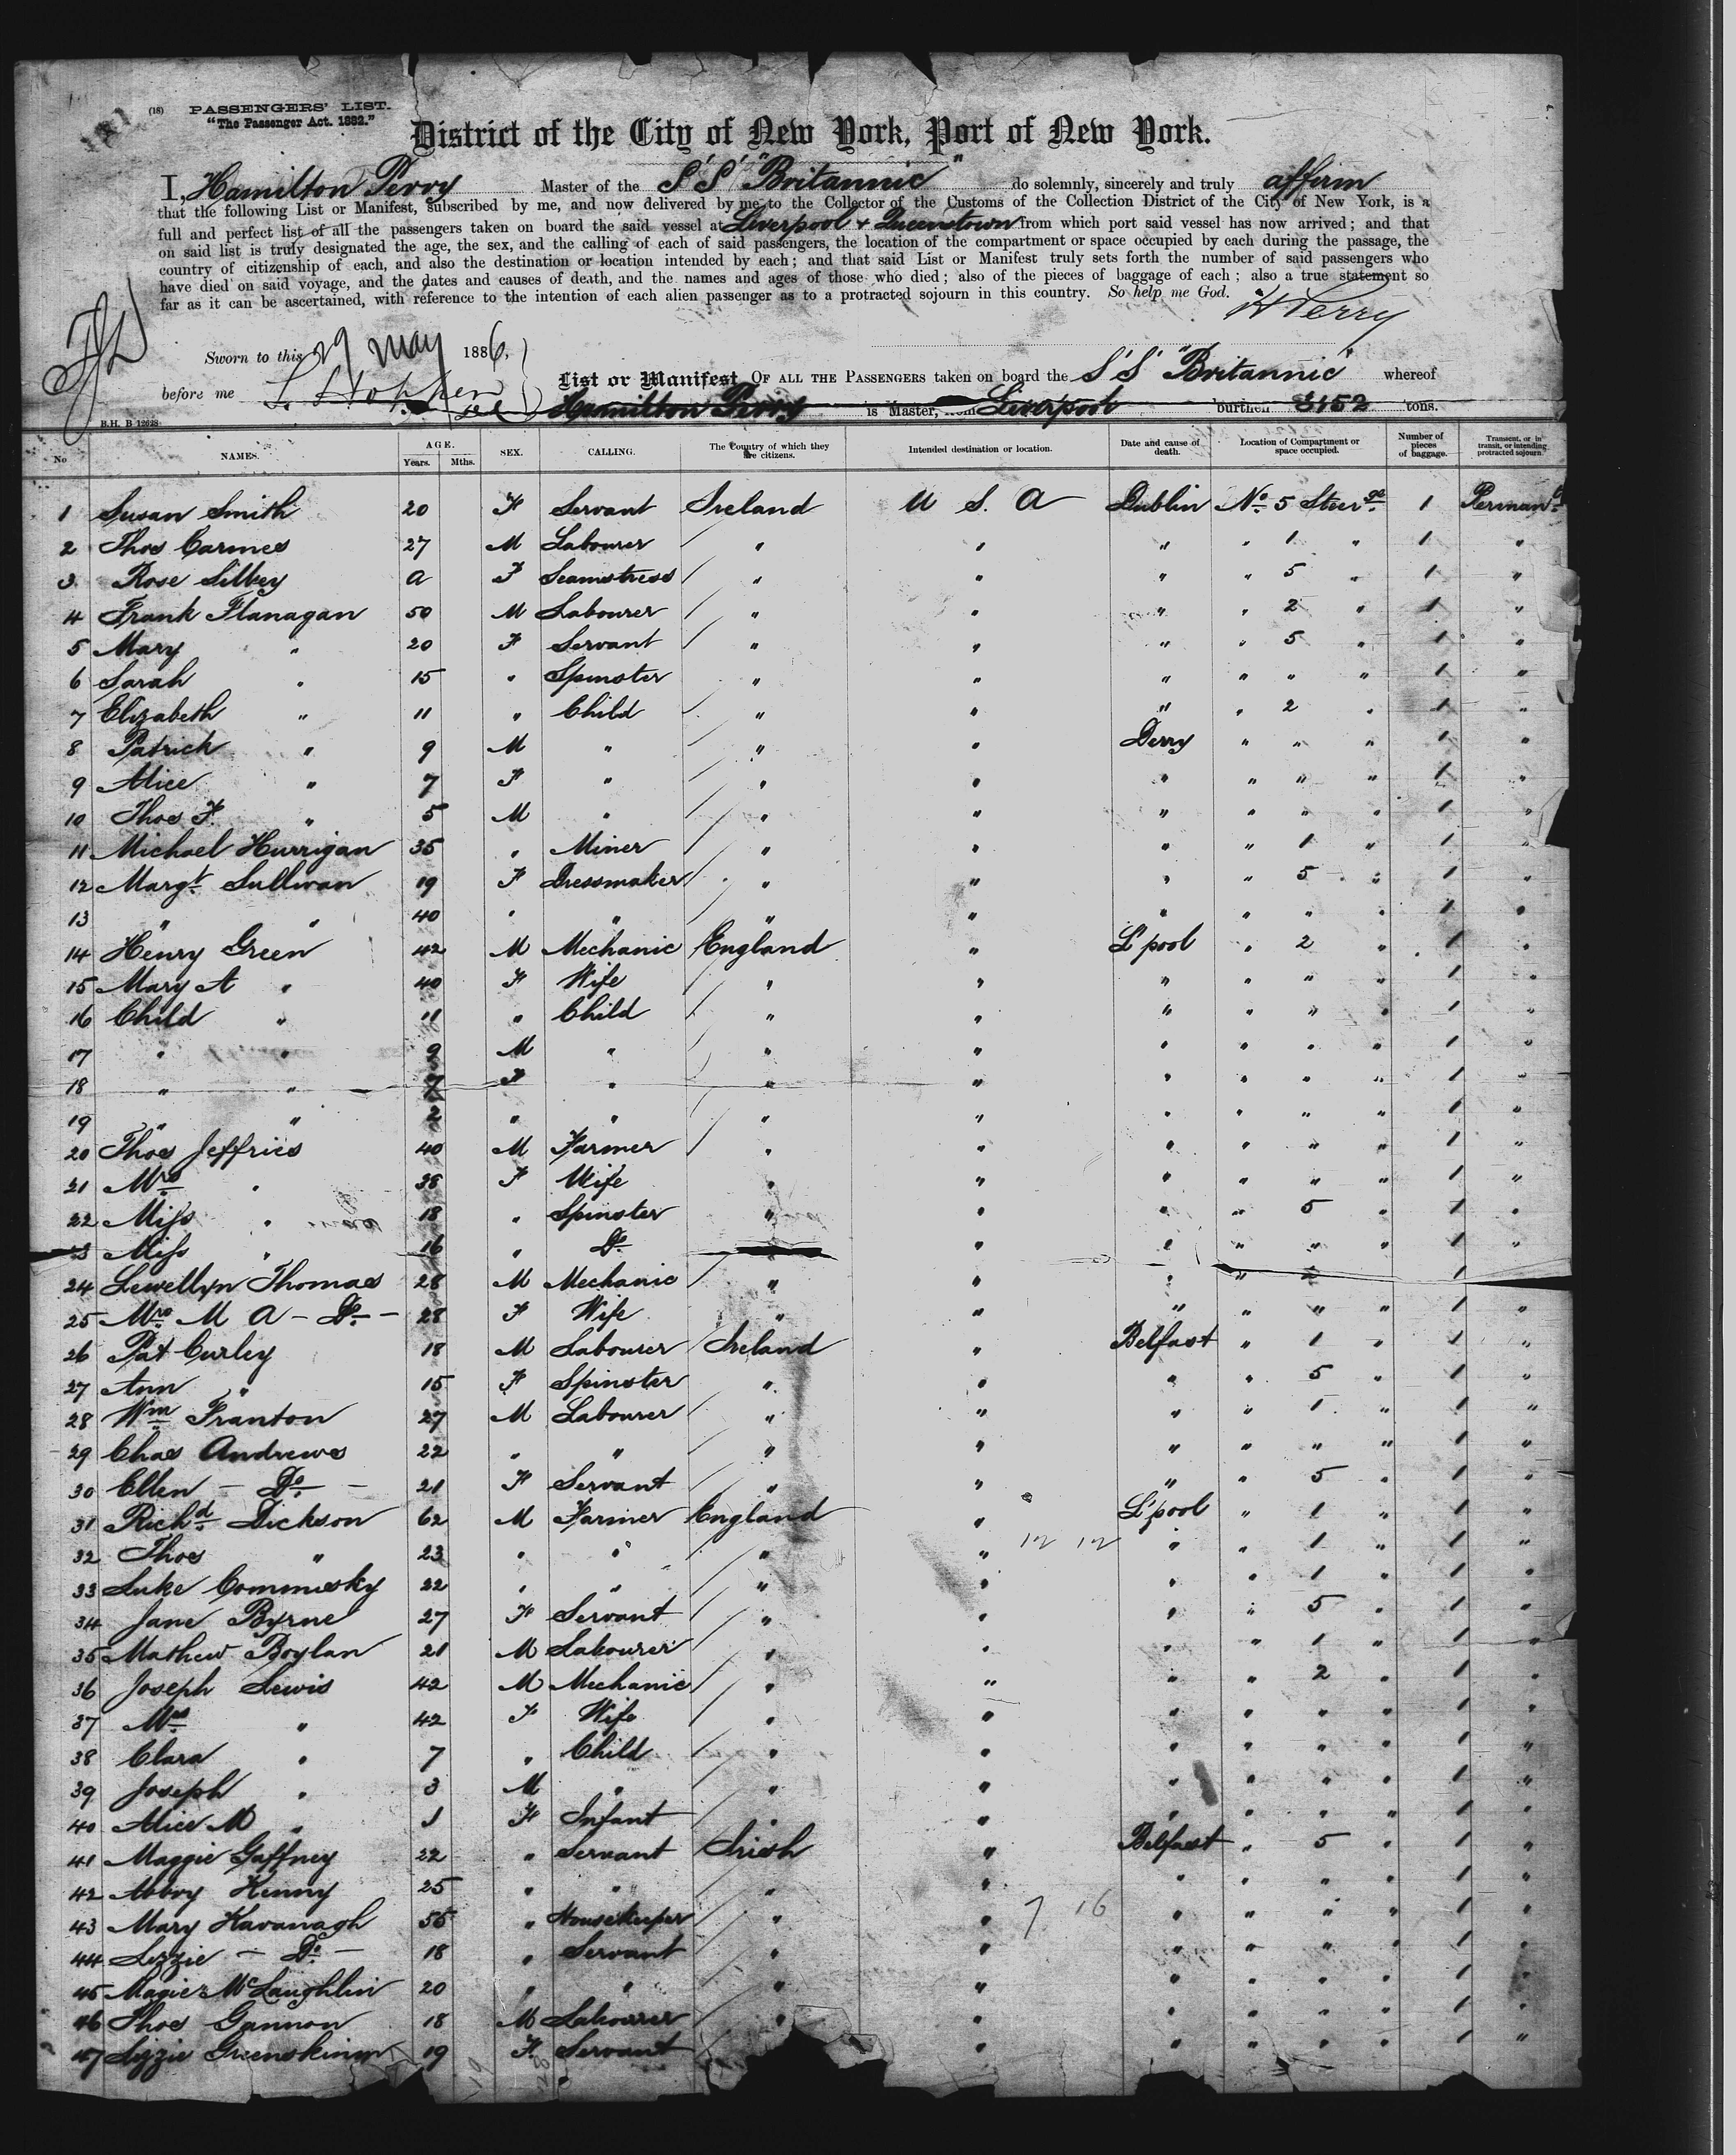 (18) PASSENGERS' LIST.
"The Passenger Act. 1882."
District of the City of New York, Port of New York.
I, Hamilton Perry Master of the S S "Britannic" do solemnly, sincerely and truly affirm
that the following List or Manifest, subscribed by me, and now delivered by me to the Collector of the Customs of the Collection District of the City of New York, is a
full and perfect list of all the passengers taken on board the said vessel at Liverpool + Queenstown from which port said vessel has now arrived; and that
on said list is truly designated the age, the sex, and the calling of each of said passengers, the location of the compartment or space occupied by each during the passage, the
country of citizenship of each, and also the destination or location intended by each; and that said List or Manifest truly sets forth the number of said passengers who
have died on said voyage, and the dates and causes of death, and the names and ages of those who died; also of the pieces of baggage of each; also a true statement so
far as it can be ascertained, with reference to the intention of each alien passenger as to a protracted sojourn in this country. So help me God.
H Perry
Sworn to this 29 May 1886,
before me
List or Manifest OF ALL THE PASSENGERS taken on board the S S "Britannic" whereof
Hamilton Perry is Master, from Liverpool burthen 3152 tons.
B.H. B 12628
No NAMES. AGE. Years. Mths. SEX. CALLING. The Country of which they are citizens. Intended destination or location. Date and cause of death. Location of Compartment or space occupied. Number of pieces of baggage. Transient, or in transit, or intending protracted sojourn.
1 Susan Smith 20 F Servant Ireland U S. A Dublin No. 5 Steerge. 1 Permant.
2 Thos Carmes 27 M Labourer " " " " 1 " 1 "
3 Rose Silbey a F Seamstress " " " " 5 " 1 "
4 Frank Flanagan 50 M Labourer " " " " 2 " 1 "
5 Mary " 20 F Servant " " " " 5 " 1 "
6 Sarah " 15 " Spinster " " " " " " 1 "
7 Elizabeth " 11 " Child " " " " 2 " 1 "
8 Patrick " 9 M " " " Derry " " " 1 "
9 Alice " 7 F " " " " " " " 1 "
10 Thos F. " 5 M " " " " " " " 1 "
11 Michael Hurrigan 35 " Miner " " " " 1 " 1 "
12 Margt. Sullivan 19 F Dressmaker " " " " 5 " 1 "
13 " " 40 " " " " " " " " 1 "
14 Henry Green 42 M Mechanic England " L'pool " 2 " 1 "
15 Mary A " 40 F Wife " " " " " " 1 "
16 Child " 11 " Child " " " " " " 1 "
17 " " 9 M " " " " " " " 1 "
18 " " 7 F " " " " " " " 1 "
19 " " 2 " " " " " " " " 1 "
20 Thos Jeffries 40 M Farmer " " " " " " 1 "
21 Mrs " 38 F Wife " " " " " " 1 "
22 Miss " 18 " Spinster " " " " 5 " 1 "
23 Miss " 16 " Do. " " " " " 1 "
24 Lewellyn Thomas 28 M Mechanic " " " " 2 1
25 Mrs. M A - Do. - 28 F Wife " " " " " " 1 "
26 Pat Curley 18 M Labourer Ireland " Belfast " 1 " 1 "
27 Ann " 15 F Spinster " " " " 5 " 1 "
28 Wm Franton 27 M Labourer " " " " 1 " 1 "
29 Chas Andrews 22 " " " " " " " " 1 "
30 Ellen - Do. - 21 F Servant " " " " 5 " 1 "
31 Richd. Dickson 62 M Farmer England " L'pool " 1 " 1 "
32 Thos " 23 " " " " 12 12 " " 1 " 1 "
33 Luke Commesky 22 " " " " " " 1 " 1 "
34 Jane Byrne 27 F Servant " " " " 5 " 1 "
35 Mathew Boylan 21 M Labourer " " " " 1 " 1 "
36 Joseph Lewis 42 M Mechanic " " " " 2 " 1 "
37 Mrs " 42 F Wife " " " " " " 1 "
38 Clara " 7 " Child " " " " " " 1 "
39 Joseph " 3 M " " " " " " " 1 "
40 Alice M " 1 F Infant " " " " " " 1 "
41 Maggie Gaffney 22 " Servant Irish " Belfast " 5 " 1 "
42 Abbey Kenny 25 " " " " " " " " 1 "
43 Mary Kavanagh 55 " Housekeeper " " 7 16 " " " " 1 "
44 Lizzie - Do. - 18 " Servant " " " " " " 1 "
45 Magie McLaughlin 20 " " " " " " " " 1 "
46 Thos Gannon 18 M Labourer " " " " " " 1 "
47 Lizzie 19 F. Servant " " " " " 1 "